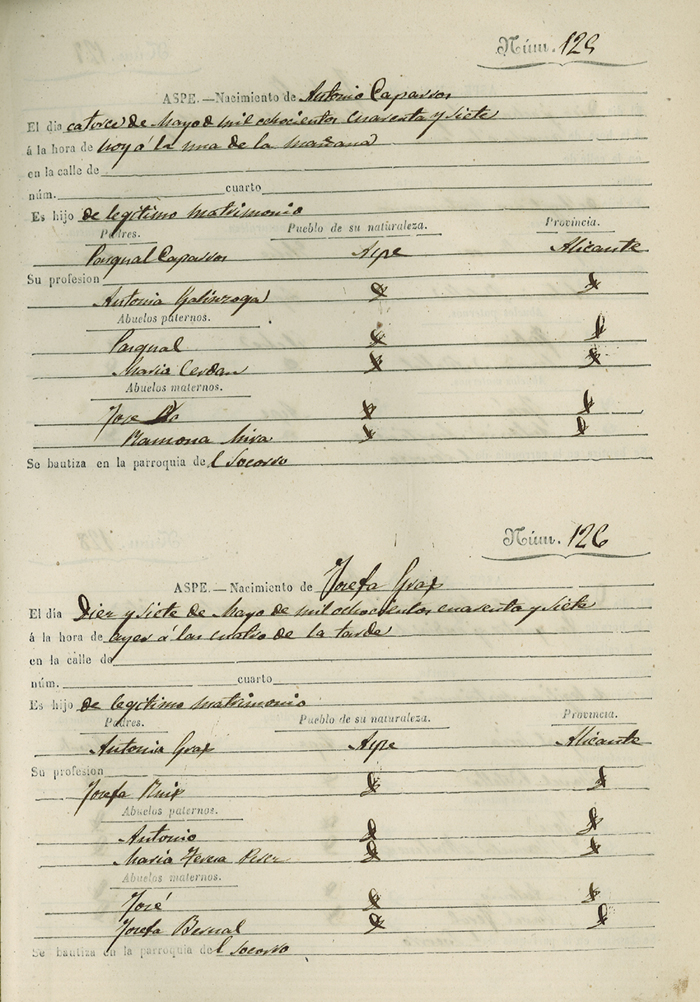 Núm. 125
ASPE.—Nacimiento de Antonio Caparros
El dia catorce de Mayo de mil ochocientos cuarenta y siete
á la hora de hoy á la una de la mañana
en la calle de
núm. cuarto
Es hijo de legitimo matrimonio
Padres. Pueblo de su naturaleza. Provincia.
Pasqual Caparros Aspe Alicante
Su profesion
Antonia Galinzoga
Abuelos paternos.
Pasqual
Maria Cerdan
Abuelos maternos.
Jose
Ramona Mira
Se bautiza en la parroquia del Socorro
Núm. 126
ASPE.—Nacimiento de Josefa Gras
El dia Diez y siete de Mayo de mil ochocientos cuarenta y siete
á la hora de ayer á las cuatro de la tarde
en la calle de
núm. cuarto
Es hijo de legitimo matrimonio
Padres. Pueblo de su naturaleza. Provincia.
Antonio Gras Aspe Alicante
Su profesion
Josefa Ruiz
Abuelos paternos.
Antonio
Maria Teresa
Abuelos maternos.
José
Josefa Bernal
Se bautiza en la parroquia del Socorro